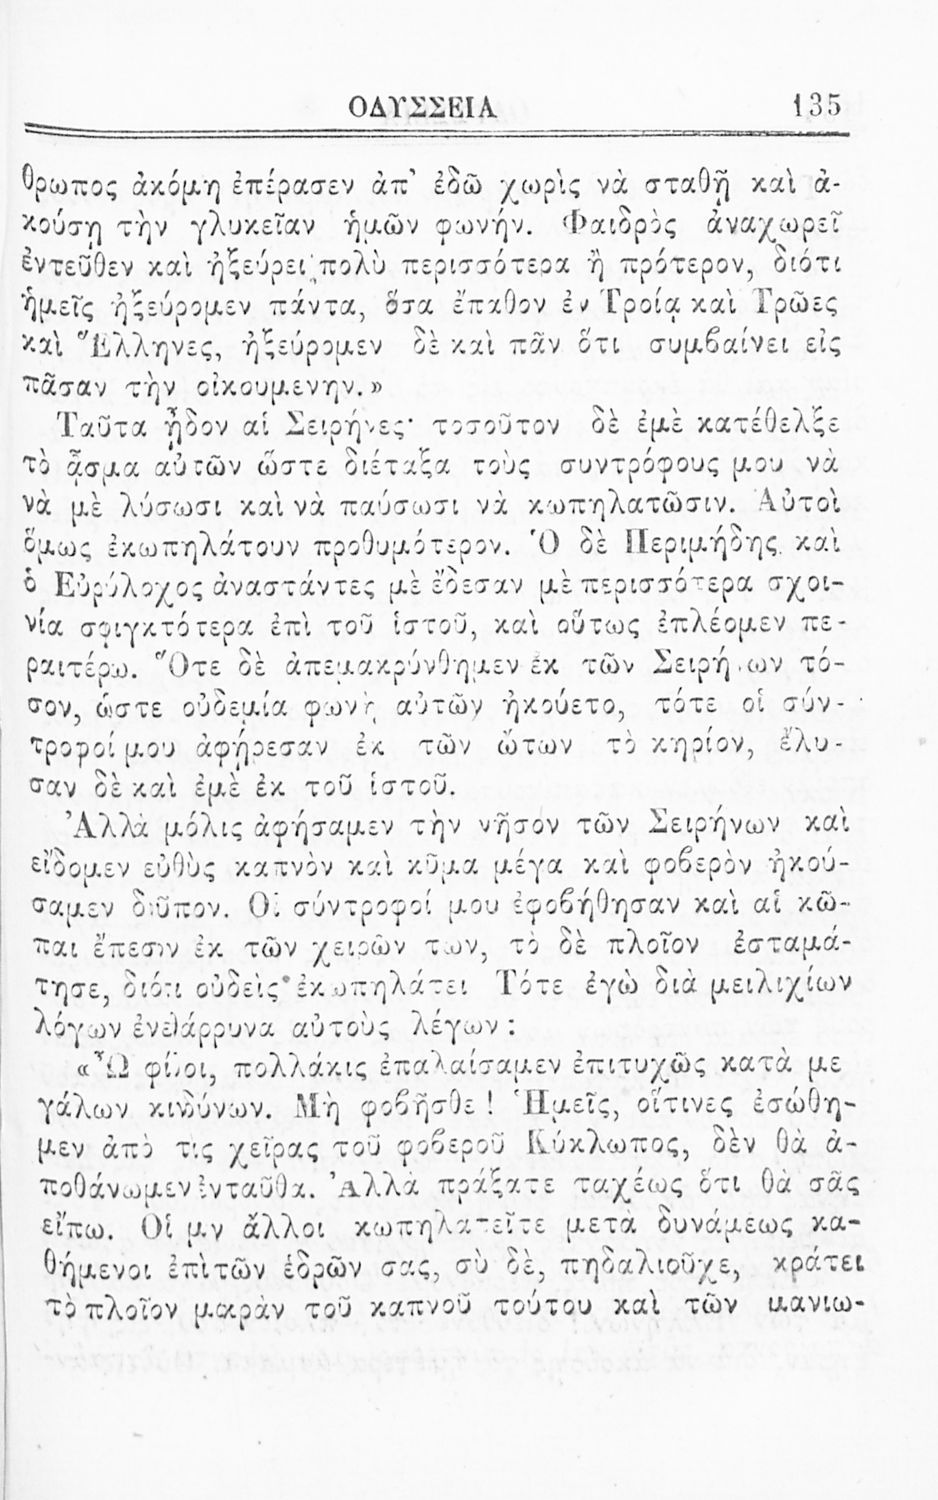 ΟΔΥΣΣΕΙΑ 135
θρωπος ἀκόμη ἐπέρασεν ἀπ' ἐδῶ χωρὶς νὰ σταθῇ καὶ ἀ-
κούσῃ τὴν γλυκεῖαν ἡμῶν φωνήν. Φαιδρὸς ἀναχωρεῖ
ἐντεῦθεν καὶ ἠξεύρει πολὺ περισσότερα ἢ πρότερον, διότι
ἡμεῖς ἠξεύρομεν πάντα, ὅσα ἔπαθον ἐν Τροίᾳ καὶ Τρῶες
καὶ Ἕλληνες, ἠξεύρομεν δὲ καὶ πᾶν ὅτι συμβαίνει εἰς
πᾶσαν τὴν οἰκουμενην.»
Ταῦτα ᾖδον αἱ Σειρῆνες· τοσοῦτον δὲ ἐμὲ κατέθελξε
τὸ ᾆσμα αὐτῶν ὥστε διέταξα τοὺς συντρόφους μου νὰ
νὰ μὲ λύσωσι καὶ νὰ παύσωσι νὰ κωπηλατῶσιν. Αὐτοὶ
ὅμως ἐκωπηλάτουν προθυμότερον. Ὁ δὲ Περιμήδης καὶ
ὁ Εὐρύλοχος ἀναστάντες μὲ ἔδεσαν μὲ περισσότερα σχοι-
νία σφιγκτότερα ἐπὶ τοῦ ἱστοῦ, καὶ οὕτως ἐπλέομεν πε-
ραιτέρω. Ὅτε δὲ ἀπεμακρύνθημεν ἐκ τῶν Σειρήνων τό-
σον, ὥστε οὐδεμία φωνὴ αὐτῶν ἠκούετο, τότε οἱ σύν-
τροφοί μου ἀφῄρεσαν ἐκ τῶν ὤτων τὸ κηρίον, ἔλυ-
σαν δὲ καὶ ἐμὲ ἐκ τοῦ ἱστοῦ.
Ἀλλὰ μόλις ἀφήσαμεν τὴν νῆσον τῶν Σειρήνων καὶ
εἴδομεν εὐθὺς καπνὸν καὶ κῦμα μέγα καὶ φοβερὸν ἠκού-
σαμεν δοῦπον. Οἱ σύντροφοί μου ἐφοβήθησαν καὶ αἱ κῶ-
παι ἔπεσον ἐκ τῶν χειρῶν των, τὸ δὲ πλοῖον ἐσταμά-
τησε, διότι οὐδεὶς ἐκωπηλάτει Τότε ἐγὼ διὰ μειλιχίων
λόγων ἐνεθάρρυνα αὐτοὺς λέγων :
«Ὦ φίλοι, πολλάκις ἐπαλαίσαμεν ἐπιτυχῶς κατὰ με
γάλων κινδύνων. Μὴ φοβῆσθε ! Ἡμεῖς, οἵτινες ἐσώθη-
μεν ἀπὸ τὰς χεῖρας τοῦ φοβεροῦ Κύκλωπος, δὲν θὰ ἀ-
ποθάνωμεν ἐνταῦθα. Ἀλλὰ πράξατε ταχέως ὅτι θὰ σᾶς
εἴπω. Οἱ μὲν ἄλλοι κωπηλατεῖτε μετὰ δυνάμεως κα-
θήμενοι ἐπὶ τῶν ἑδρῶν σας, σὺ δὲ, πηδαλιοῦχε, κράτει
τὸ πλοῖον μακρὰν τοῦ καπνοῦ τούτου καὶ τῶν μανιω-